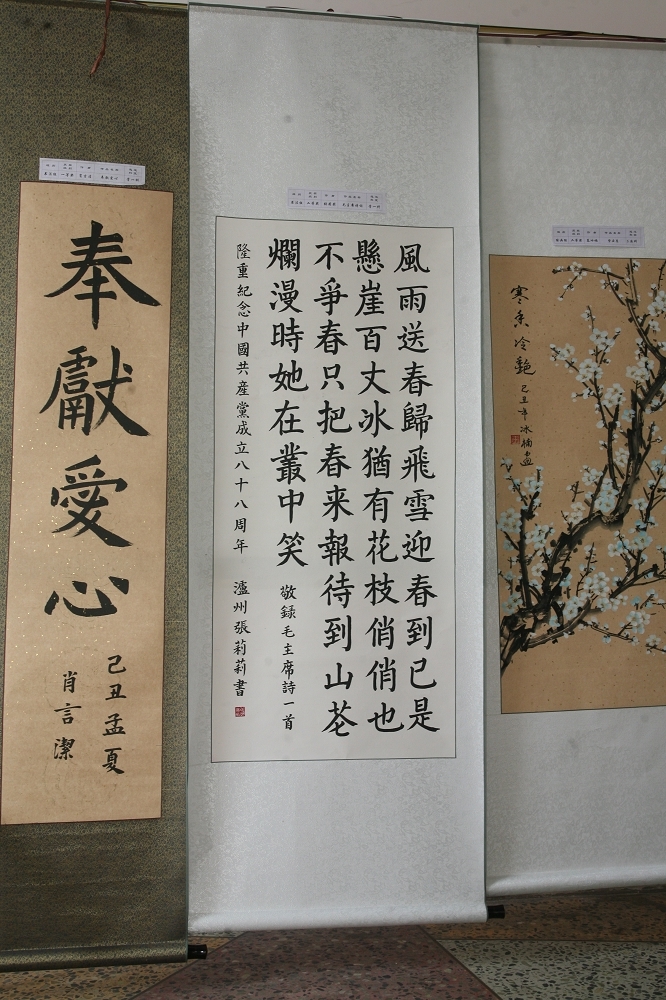 奉獻愛心
己丑孟夏
肖言潔
風雨送春歸飛雪迎春到已是
懸崖百丈冰猶有花枝俏俏也
不爭春只把春来報待到山芲
爛漫時她在叢中笑
敬録毛主席詩一首
隆重紀念中國共産黨成立八十八周年 瀘州張莉莉書
寒香冷艷
己丑年冰楠画